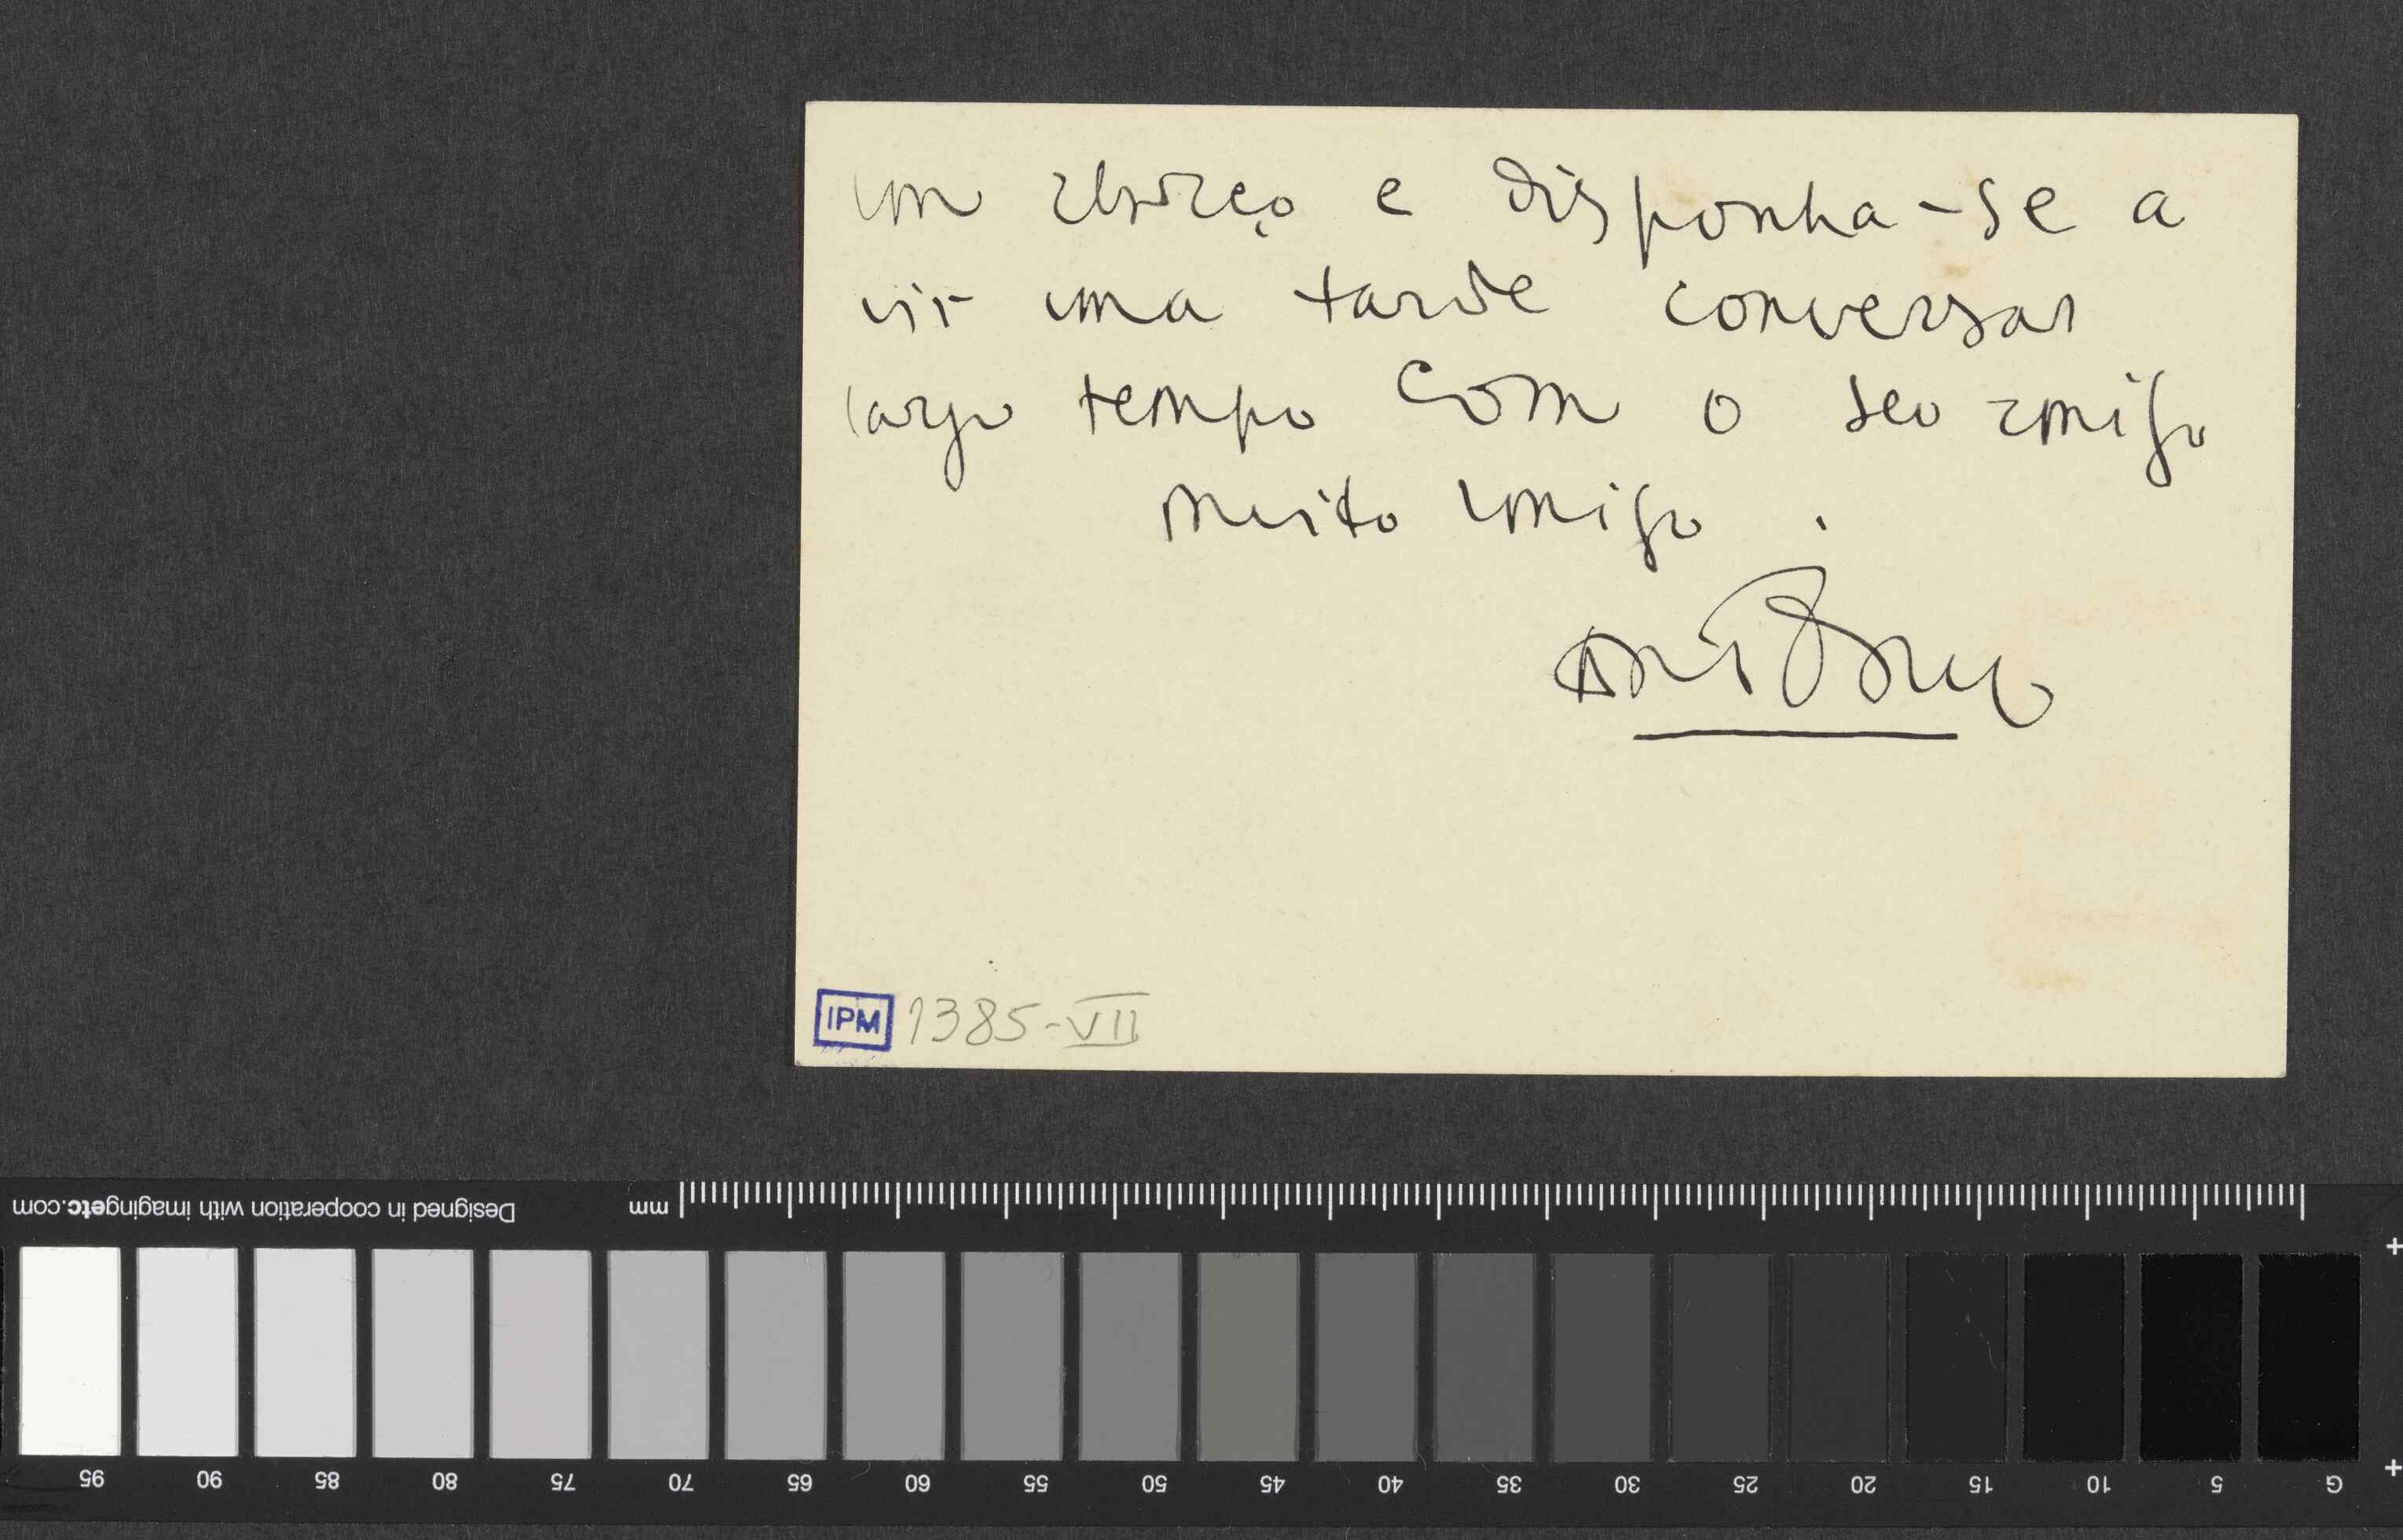 um abraço e disponha-se a
vir uma tarde conversar
largo tempo com o seu amigo
muito amigo.
IPM 1385-VII
Designed in cooperation with imagingetc.com
mm
95 90 85 80 75 70 65 60 55 50 45 40 35 30 25 20 15 10 5 G